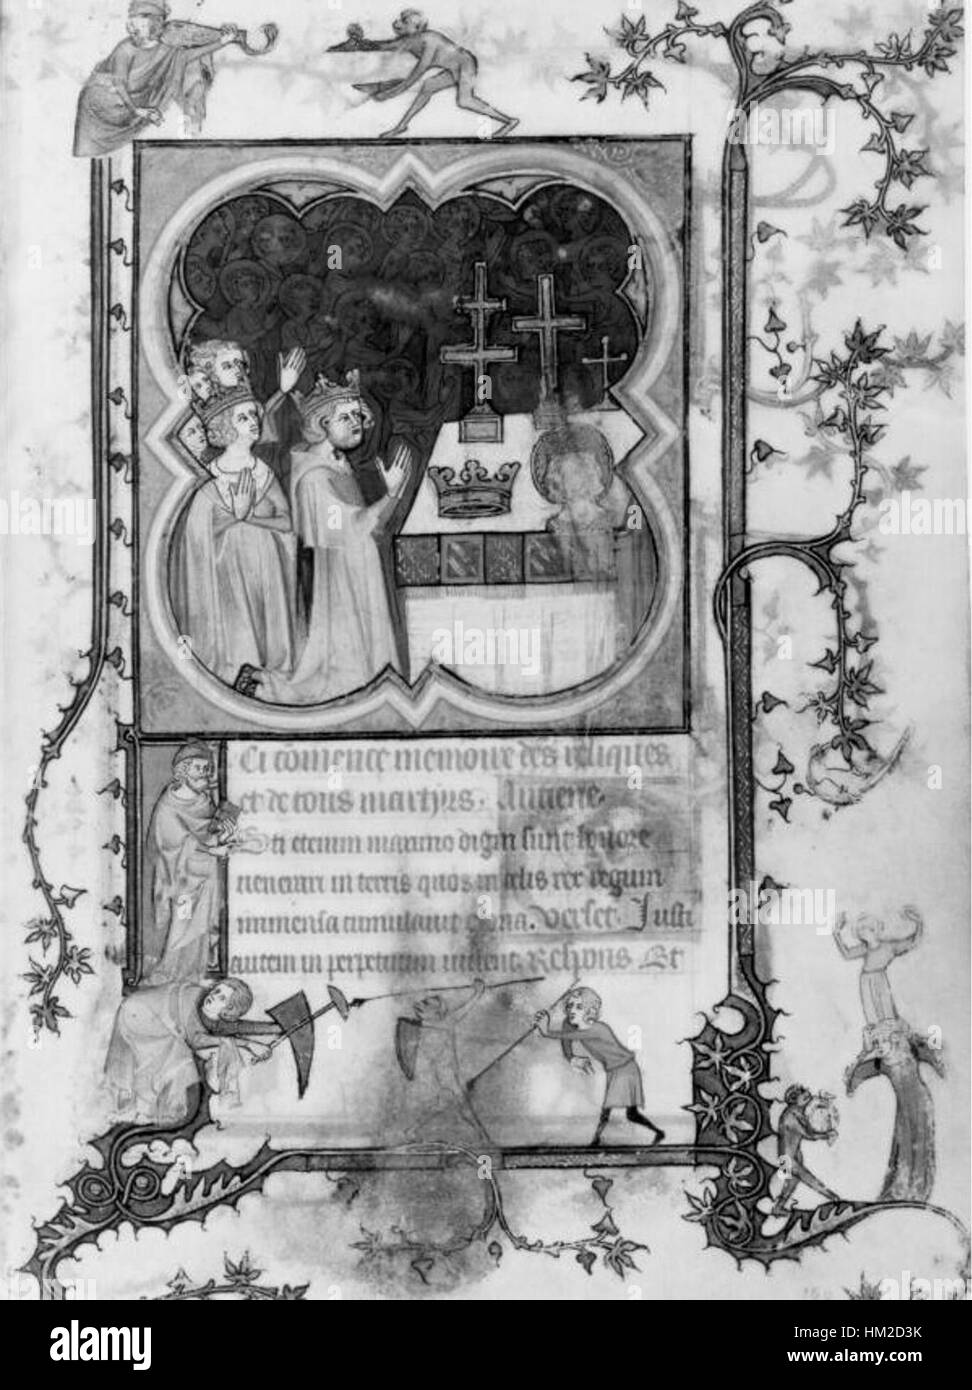 Ci cōmence memoire des reliques
et de tous martyrs. Antiene.
Sti etenim maximo digni sunt honore
nerari in terris quos in celis rex regum
immensa cumulavit Verset. Justi
autem in perpetuum vivent. Respons. Et
a
alamy
Image ID: HM2D3K
www.alamy.com